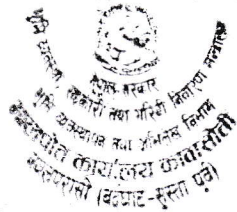 नेपाल सरकार
भूमि व्यवस्था, सहकारी तथा गरिबी निवारण मन्त्रालय
भूमि व्यवस्थापन तथा अभिलेख विभाग
मालपोत कार्यालय कावासोती
नवलपरासी (बर्दघाट-सुस्ता पूर्व)